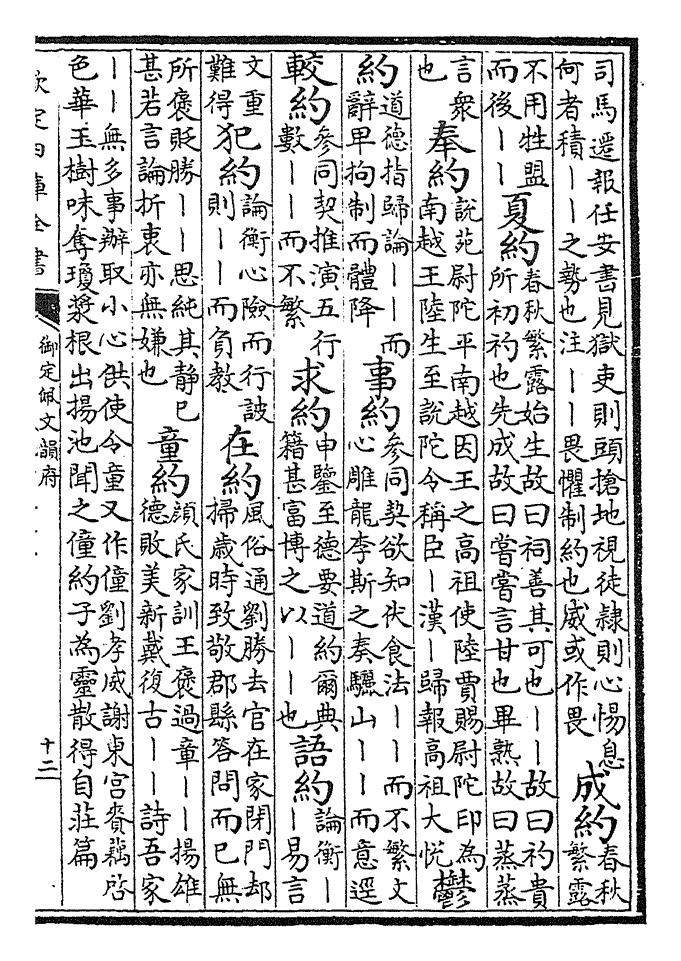 司馬遷報任安書見獄吏則頭搶地視徒隸則心惕息何者積丨丨之勢也注丨丨畏懼制約也威或作畏成約春秋繁露
不用牲盟而後丨丨夏約春秋繁露始生故曰祠善其可也丨丨故曰礿貴所初礿也先成故曰嘗嘗言甘也畢熟故曰蒸蒸
言衆也奉約說苑尉陀平南越因王之高祖使陸賈賜尉陀印為南越王陸生至說陀令稱臣丨漢丨歸報高祖大悅鬱
約道德指歸論丨丨而辭卑拘制而體降事約參同契欲知伏食法丨丨而不繁文心雕龍李斯之奏驪山丨丨而意逕
較約參同契推演五行數丨丨而不繁求約申鑒至德要道約爾典籍甚富博之以丨丨也語約論衡丨丨易言
文重難得犯約論衡心險而行詖則丨丨而負教在約風俗通劉勝去官在家閉門却掃歲時致敬郡縣答問而已無
所褒貶勝丨丨思純其静已甚若言論折衷亦無嫌也童約顔氏家訓王褒過章丨丨揚雄德敗美新戴復古丨丨詩吾家
丨丨無多事辦取小心供使令童又作僮劉孝威謝東宮賚藕啓色華玉樹味奪瓊漿根出揚池聞之僮約子為靈散得自莊篇
欽定四庫全書
御定佩文韻府
十二